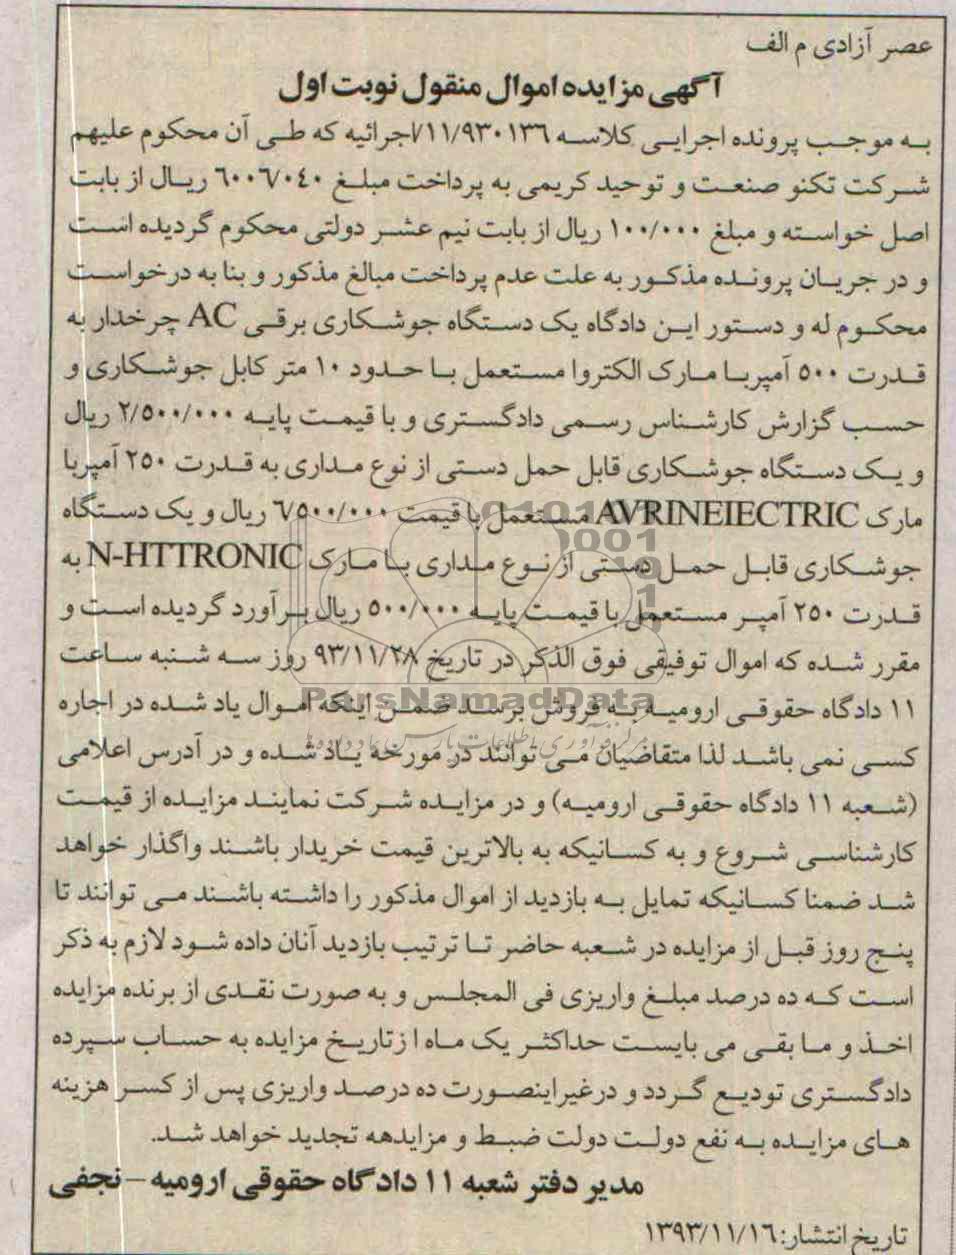 عصر آزادی م الف
آگهی مزایده اموال منقول نوبت اول
به موجب پرونده اجرایی کلاسه ۱۱/۹۳۰۱۳۶/اجرائیه که طی آن محکوم علیهم
شرکت تکنو صنعت و توحید کریمی به پرداخت مبلغ ۶۰۰۶/۰۴۰ ریال از بابت
اصل خواسته و مبلغ ۱۰۰/۰۰۰ ریال از بابت نیم عشر دولتی محکوم گردیده است
و در جریان پرونده مذکور به علت عدم پرداخت مبالغ مذکور و بنا به درخواست
محکوم له و دستور این دادگاه یک دستگاه جوشکاری برقی AC چرخدار به
قدرت ۵۰۰ آمپربا مارک الکتروا مستعمل با حدود ۱۰ متر کابل جوشکاری و
حسب گزارش کارشناس رسمی دادگستری و با قیمت پایه ۲/۵۰۰/۰۰۰ ریال
و یک دستگاه جوشکاری قابل حمل دستی از نوع مداری به قدرت ۲۵۰ آمپربا
مارک AVRINEIECTRIC مستعمل با قیمت ۶/۵۰۰/۰۰۰ ریال و یک دستگاه
جوشکاری قابل حمل دستی از نوع مداری با مارک N-HTTRONIC به
قدرت ۲۵۰ آمپر مستعمل با قیمت پایه ۵۰۰/۰۰۰ ریال برآورد گردیده است و
مقرر شده که اموال توقیفی فوق الذکر در تاریخ ۹۳/۱۱/۲۸ روز سه شنبه ساعت
ParsNamadData
۱۱ دادگاه حقوقی ارومیه به فروش برسد ضمن اینکه اموال یاد شده در اجاره
مرکز فرآوری اطلاعات پارس نماد داده ها
کسی نمی باشد لذا متقاضیان می توانند در مورخه یاد شده و در آدرس اعلامی
(شعبه ۱۱ دادگاه حقوقی ارومیه) و در مزایده شرکت نمایند مزایده از قیمت
کارشناسی شروع و به کسانیکه به بالاترین قیمت خریدار باشند واگذار خواهد
شد ضمنا کسانیکه تمایل به بازدید از اموال مذکور را داشته باشند می توانند تا
پنج روز قبل از مزایده در شعبه حاضر تا ترتیب بازدید آنان داده شود لازم به ذکر
است که ده درصد مبلغ واریزی فی المجلس و به صورت نقدی از برنده مزایده
اخذ و ما بقی می بایست حداکثر یک ماه از تاریخ مزایده به حساب سپرده
دادگستری تودیع گردد و درغیراینصورت ده درصد واریزی پس از کسر هزینه
های مزایده به نفع دولت دولت ضبط و مزایدهه تجدید خواهد شد.
مدیر دفتر شعبه ۱۱ دادگاه حقوقی ارومیه – نجفی
تاریخ انتشار: ۱۳۹۳/۱۱/۱۶